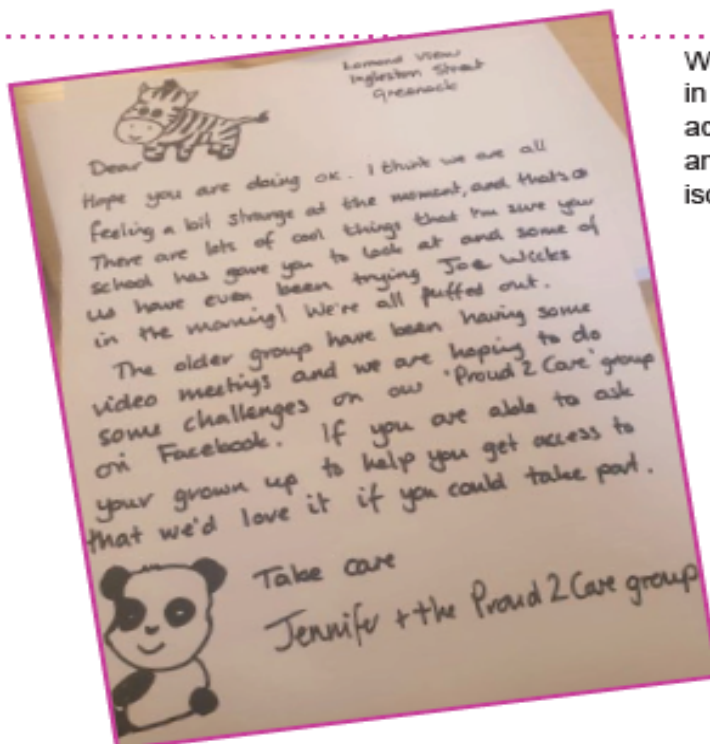 Lomond View
Ingleston Street
Greenock
Dear
Hope you are doing ok. I think we are all
feeling a bit strange at the moment, and thats ok
There are lots of cool things that I'm sure your
school has gave you to look at and some of
us have even been trying Joe Wicks
in the morning! We're all puffed out.
The older group have been having some
video meetings and we are hoping to do
some challenges on our 'Proud 2 Care' group
on Facebook. If you are able to ask
your grown up to help you get access to
that we'd love it if you could take part.
Take care
Jennifer + the Proud 2 Care group
in